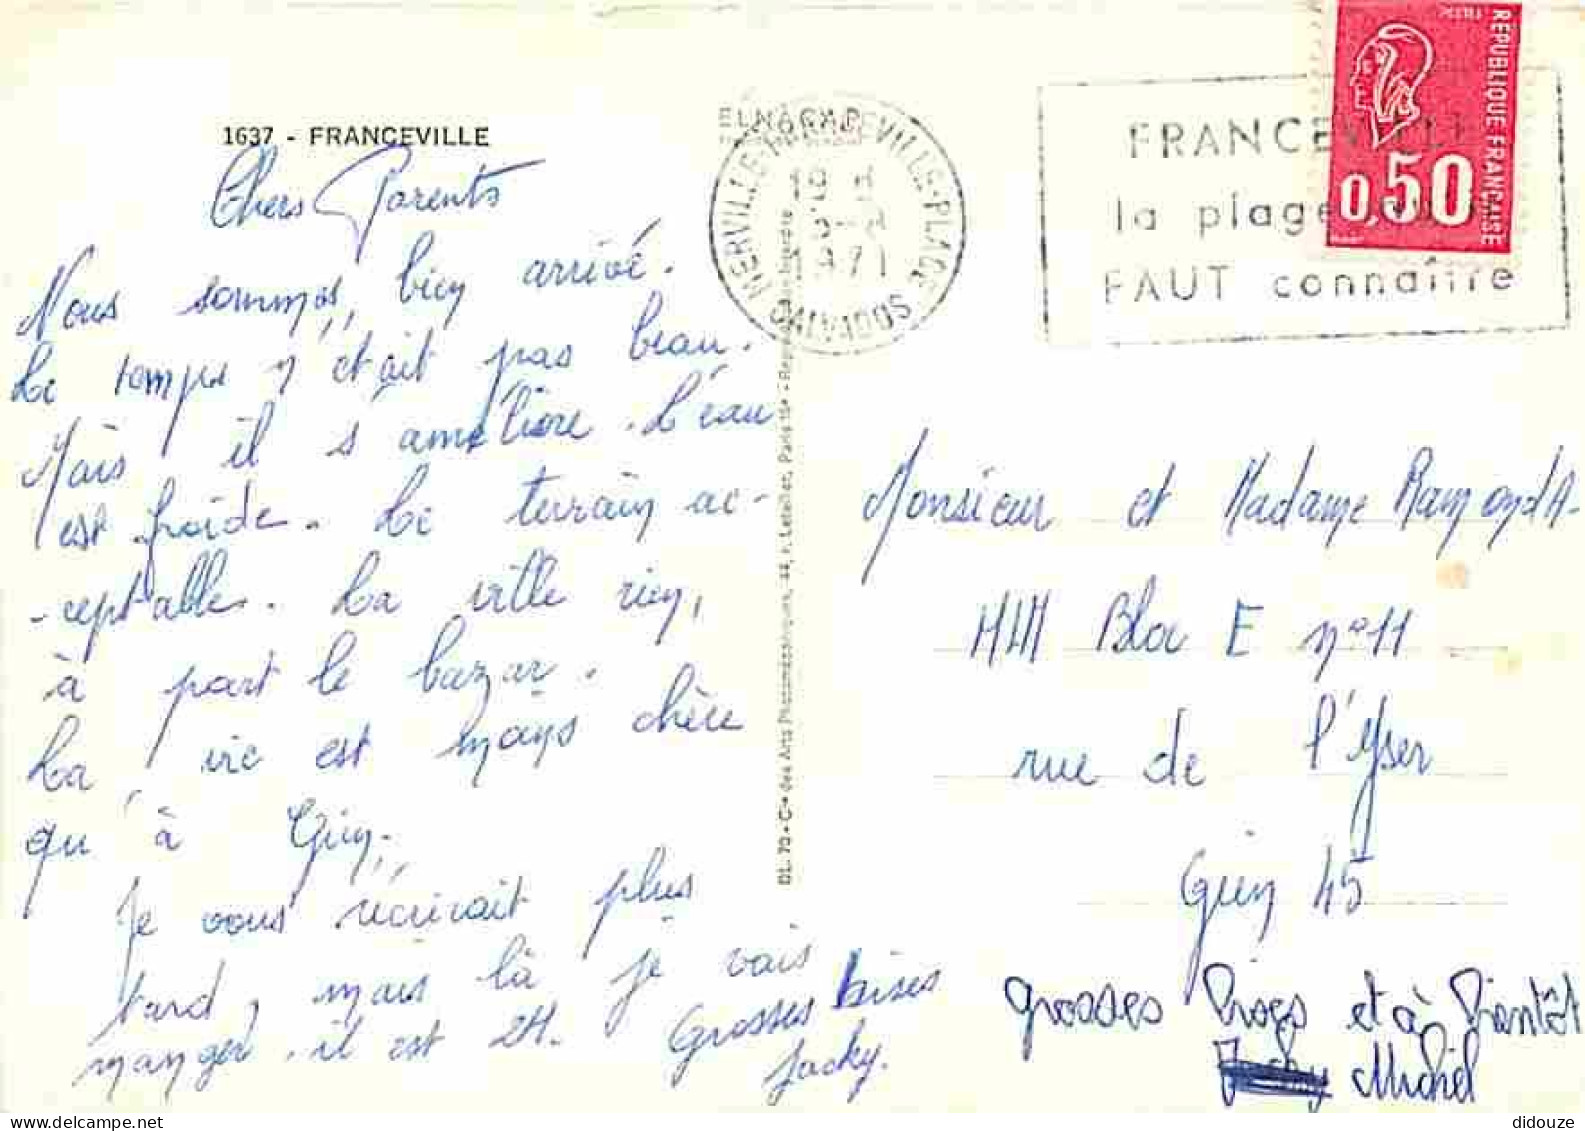 1637 - FRANCEVILLE
Chers Parents
Nous sommes, bien arrivé.
Le temps n'était pas beau.
Mais il s'améliore. L'eau
est froide. Le terrain ac-
-ceptable. La ville rien,
à part le bazar.
La vie est moins chère
qu'à Gien.
Je vous récrirait plus
tard, mais là je vais
manger. il est 2H. Grosses bises
Jacky.
MERVILLE-FRANCEVILLE-PLAGE
19 H
1971
CALVADOS
FRANCEVILLE
la plage
FAUT connaître
REPUBLIQUE FRANCAISE
0,50
DL. 70 - Cie des Arts Photomécaniques, 44, r. Letellier, Paris 15e - Reproduction interdite
Monsieur et Madame Raymond A-
HLM Bloc E n°11
rue de l'Yser
Gien 45
grosses Bises et à Bientôt
Michel
didouze